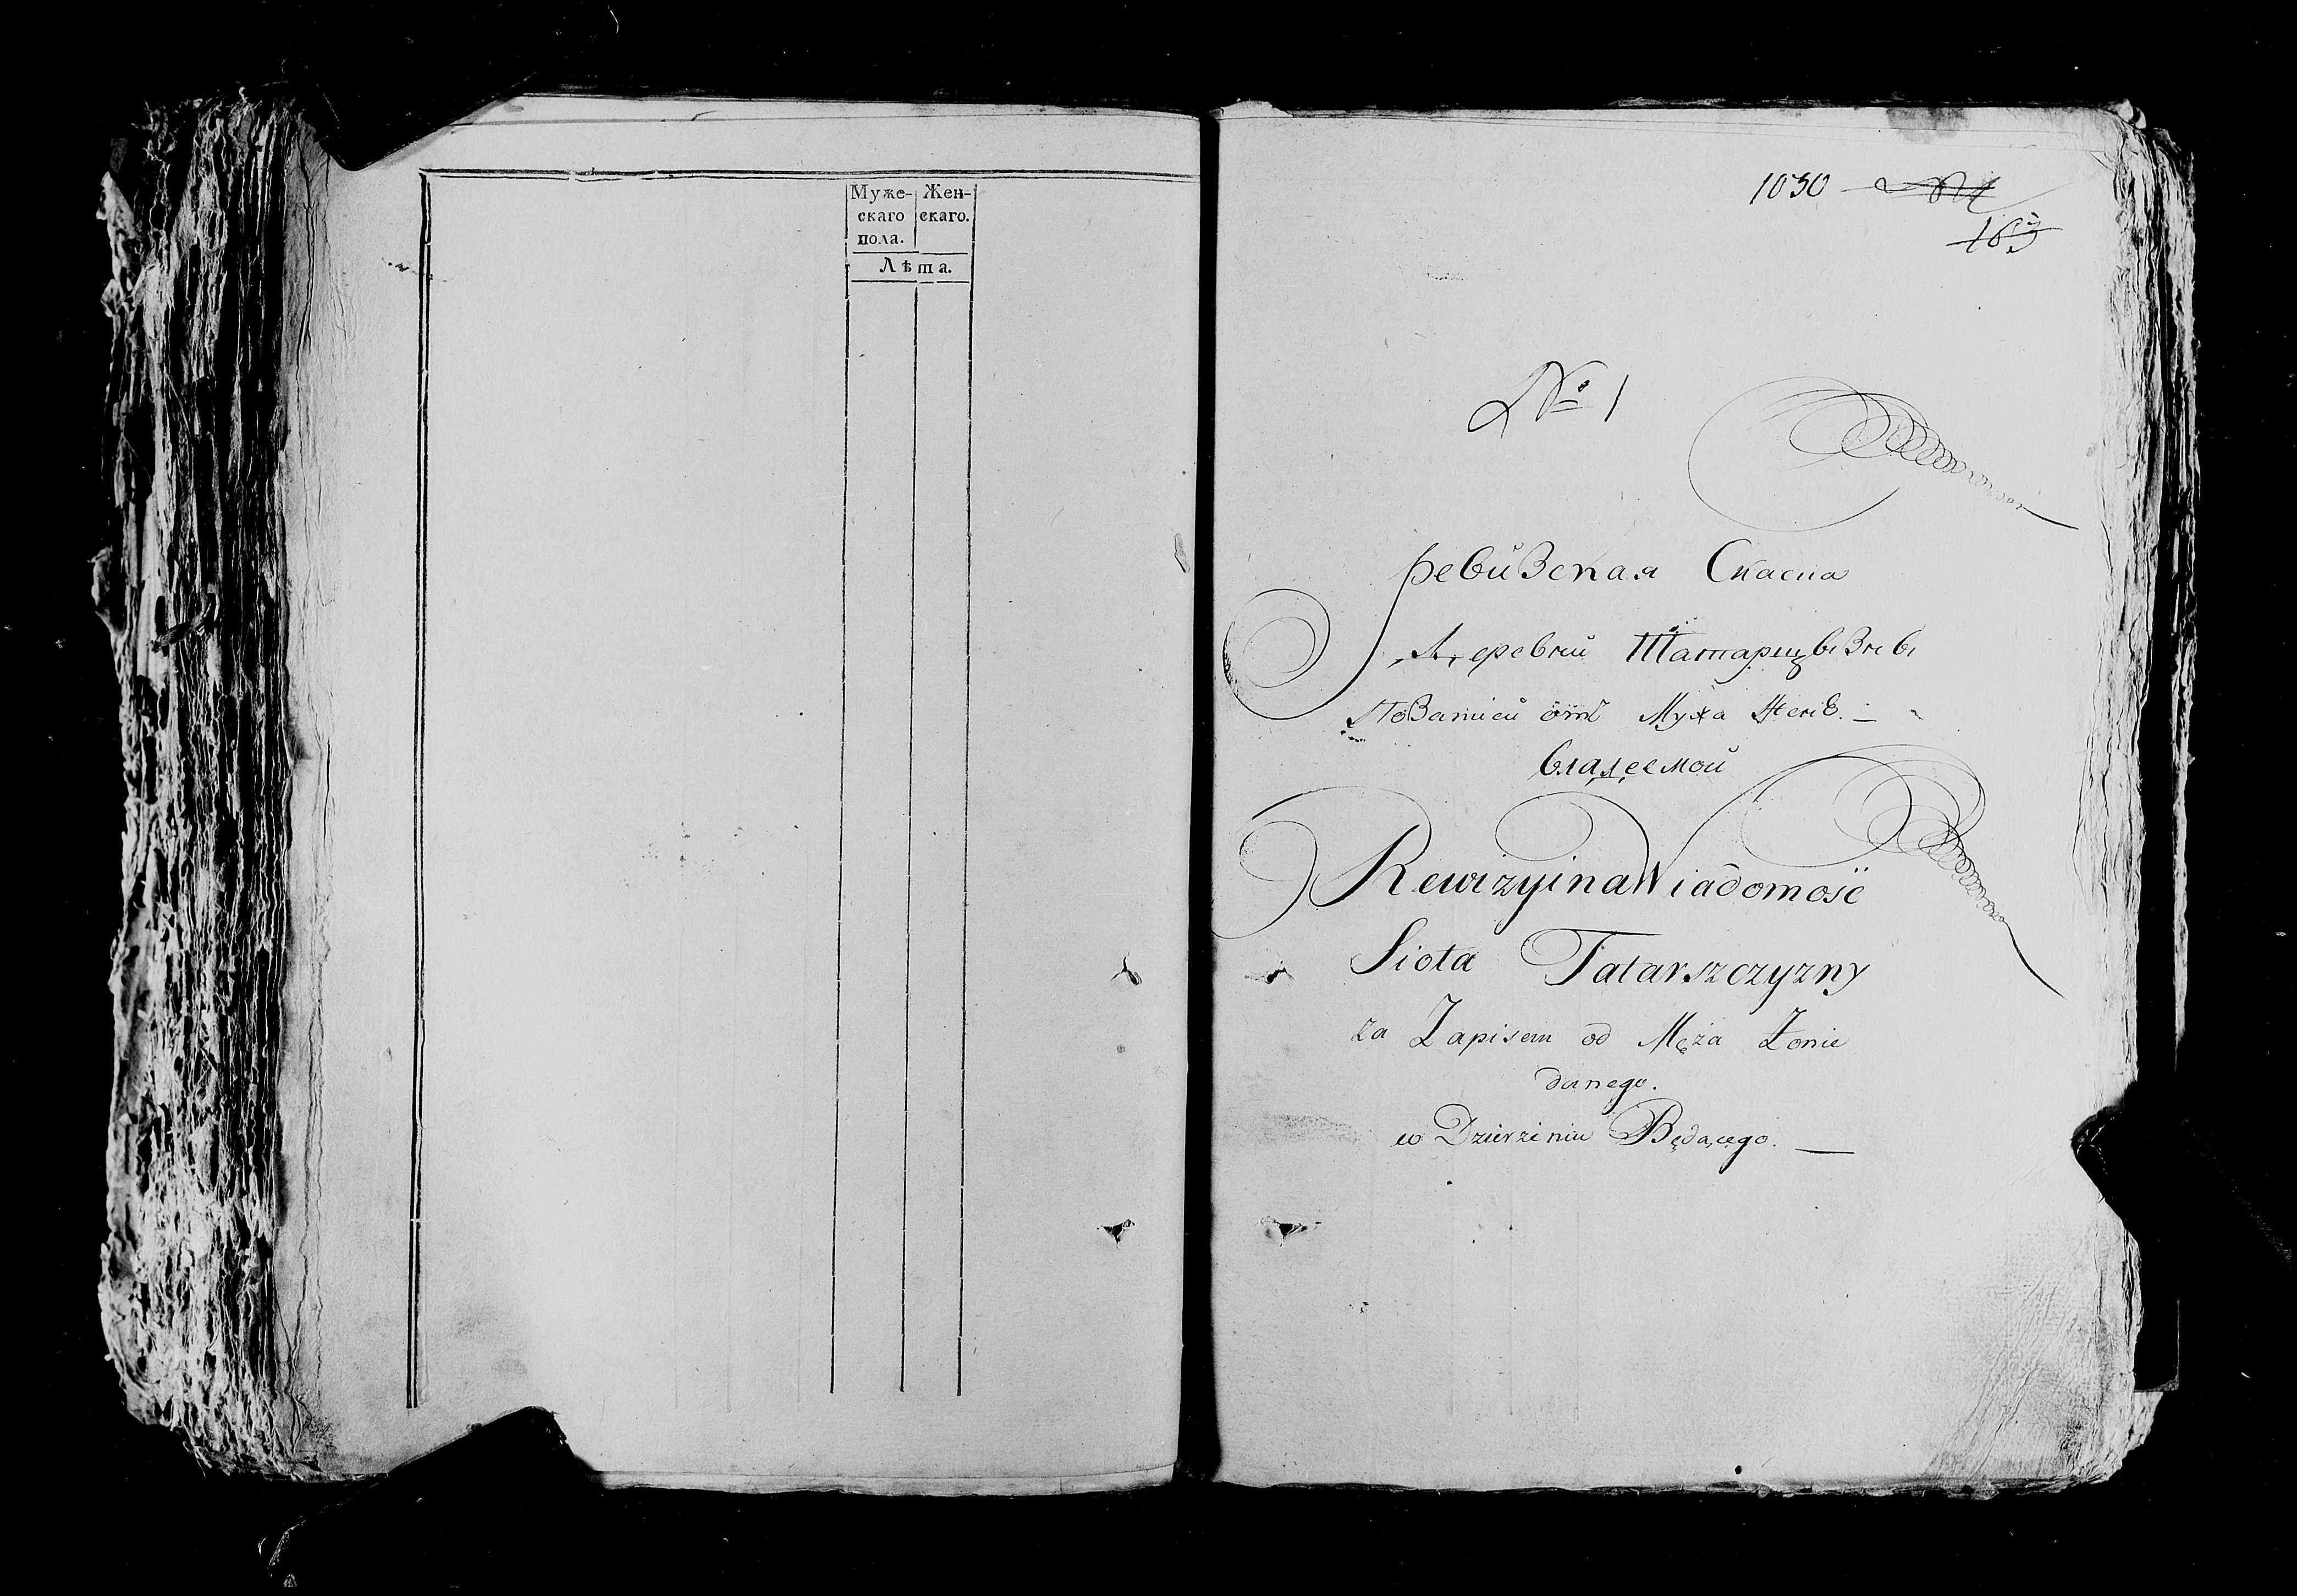 Муже- Жен-
скаго скаго.
пола.
Лѣта.
1030
163
№ 1
Ревизская Скасна
Деревни Татарщызны
по Записи отъ Мужа Женѣ. —
владеемой
Rewizyina Wiadomość
Sioła Tatarszczyzny
za Zapisem od Męża Żonie
danego.
w Dzierżeniu Będącego. —